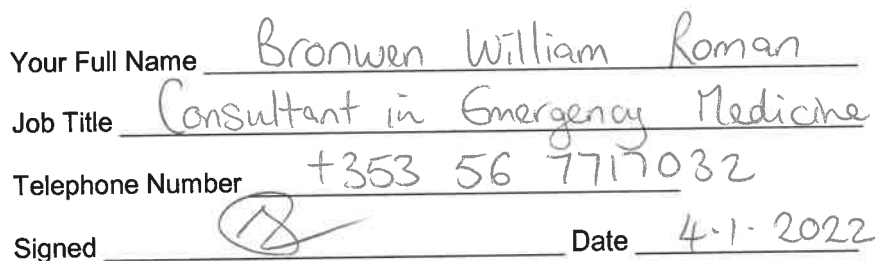 Your Full Name Bronwen William Roman
Job Title Consultant in Emergency Medicine
Telephone Number +353 56 7717032
Signed Date 4.1.2022